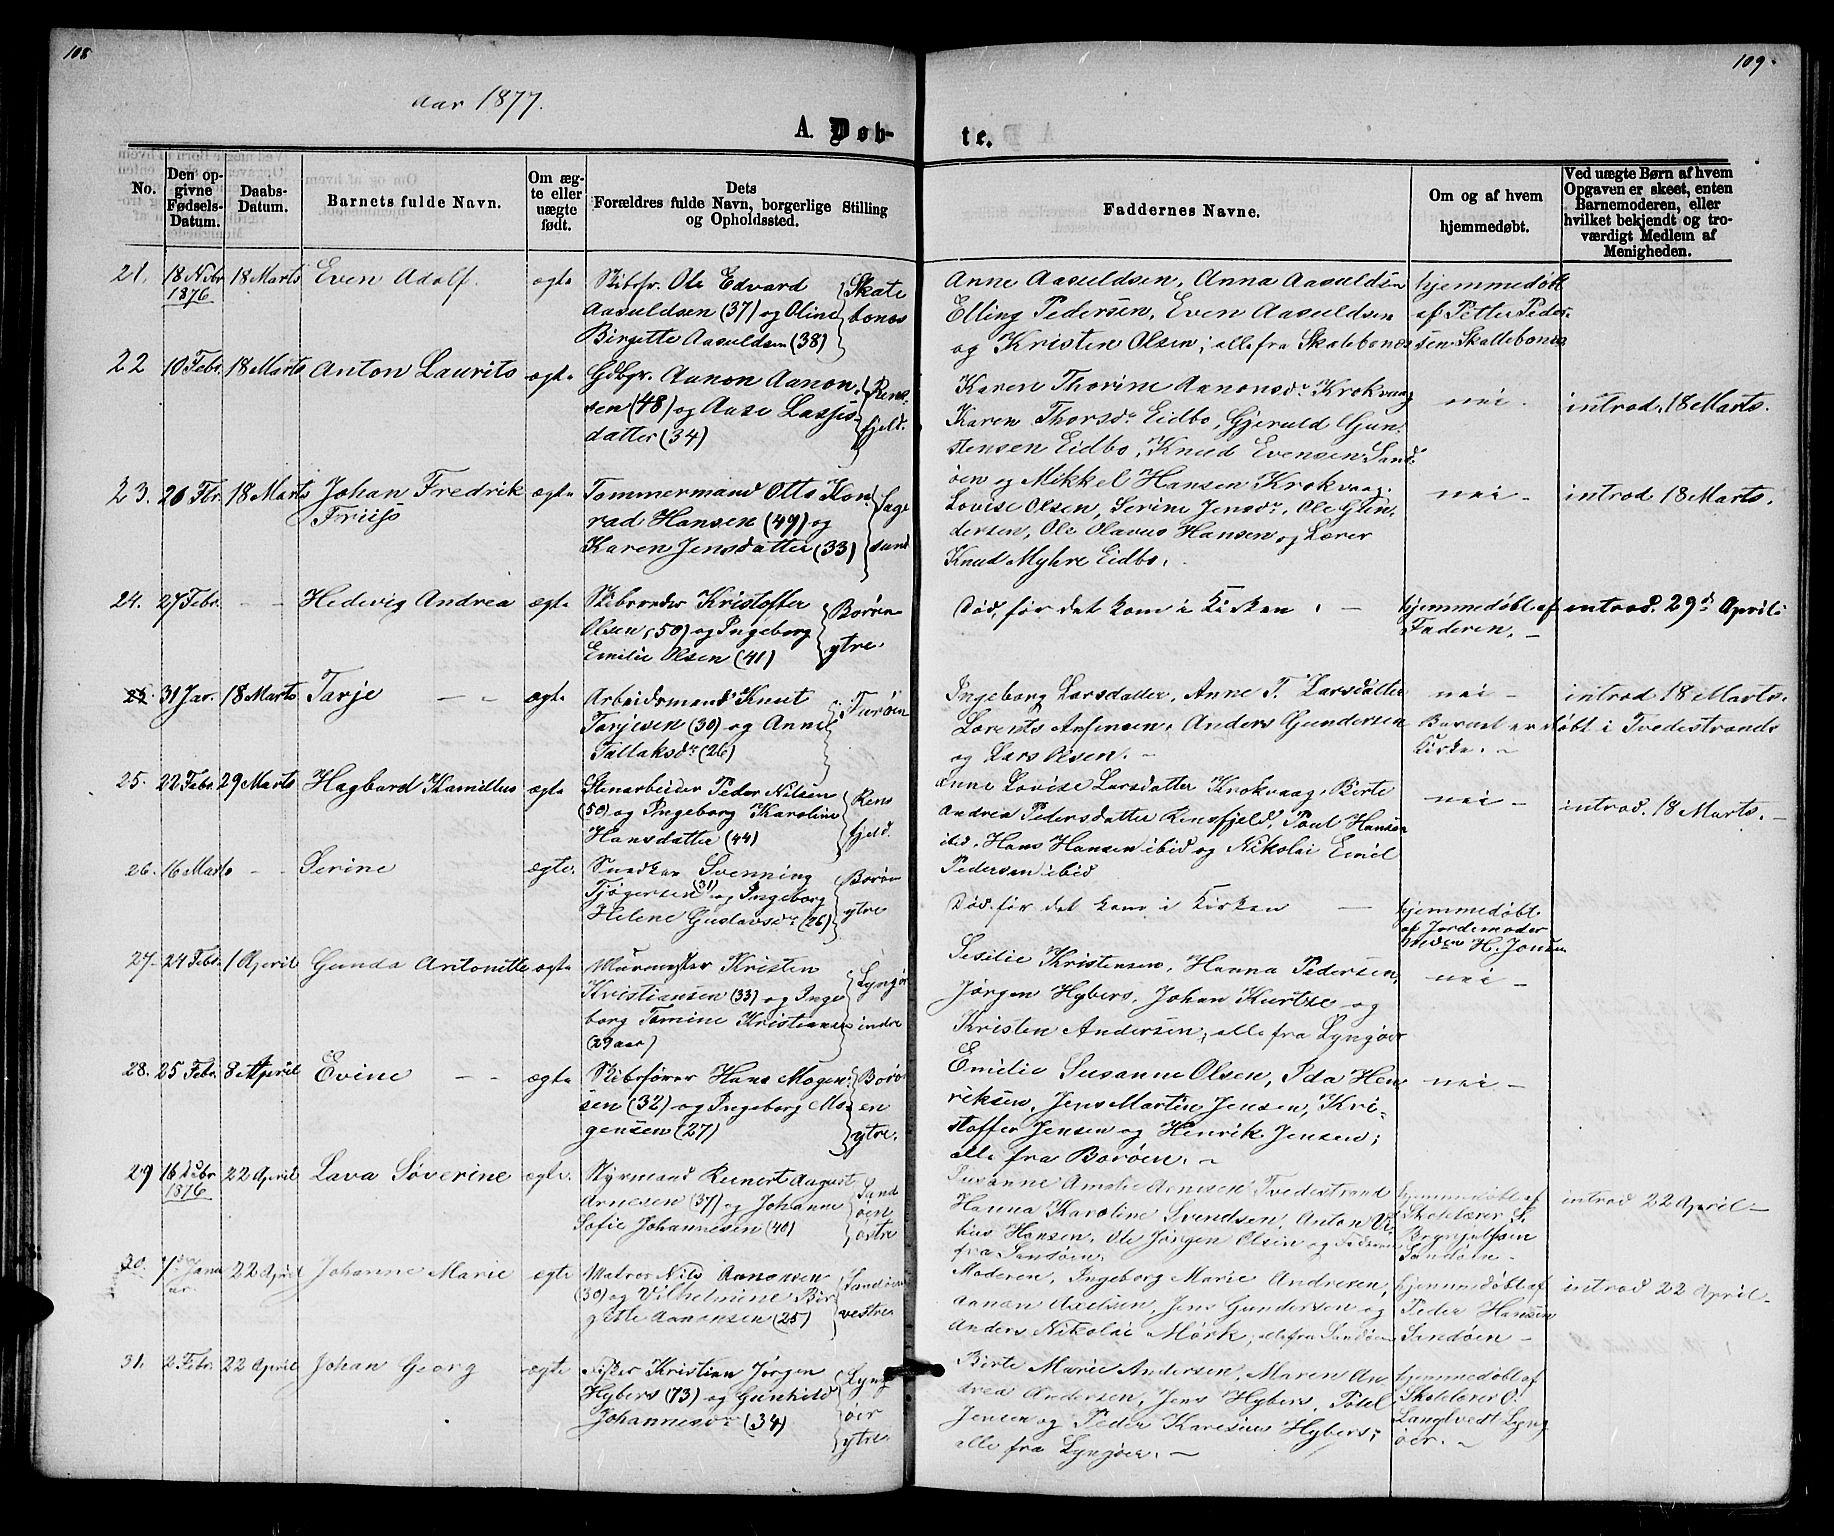 108
109.
Aar 1877.
A. Døb-
te.
No.
Den op-
givne
Fødsels-
Datum.
Daabs-
Datum.
Barnets fulde Navn.
Om æg-
te eller
uægte
født.
Dets
Forældres fulde Navn, borgerlige Stilling
og Opholdssted.
Faddernes Navne.
Om og af hvem
hjemmedøbt.
Ved uægte Børn af hvem
Opgaven er skeet, enten
Barnemoderen, eller
hvilket bekjendt og tro-
værdigt Medlem af
Menigheden.
21. 18 Nvbr 1876 18 Marts Even Adolf. ægte
Skibsfr. Ole Edvard
Aasuldsen (37) og Oline
Birgitte Aasuldsen (38)
Skate
bonæs
Anne Aasuldsen, Anna Aasuldsen
Elling Pedersen, Even Aasuldsen
og Kristen Olsen; alle fra Skatebonæs
hjemmedøbt
af Petter Peder-
sen Skattebonæs
22 10 Febr. 18 Marts Anton Laurits ægte
Gdbgr. Aanon Aanon-
sen (48) og Aase Lassis-
datter (34)
Rens-
fjeld.
Karen Thorine Aanonsdr. Krokvaag
Karen Thorsdr. Eidbo, Gjeruld Gun-
stensen Eidbo, Knud Evensen Sand-
øen og Mikkel Hansen Krokvaag.
nei -
introd. 18 Marts.
23. 26 Fbr. 18 Marts Johan Fredrik
Friis
ægte
Tømmermand Otto Kon-
rad Hansen (49) og
Karen Jensdatter (33)
Lovise Olsen, Serine Jensdr., Ole Gun-
dersen, Ole Olavus Hansen og Lærer
Knud Myhre Eidbo.
nei -
introd. 18 Marts.
24. 27 Febr. - - Hedevig Andrea ægte
Skibsreder Kristoffer
Olsen (50) og Ingeborg
Emilie Olsen (41)
Borøen
ytre.
Død, før det kom i Kirken. -
hjemmedøbt af
Faderen. -
introd. 29d April.
31 Jar. 18 Marts Tarje - - ægte
Arbeidsmand Knut
Torjesen (30) og Anne
Tallaksdr. (26)
Furøen
Ingeborg Larsdatter, Anne T. Larsdatter
Lorents Anfensen, Anders Gundersen
og Lars Olsen. -
nei -
Barnet er døbt i Tvedestrands
Kirke. -
introd. 18 Marts.
25. 22 Febr. 29 Marts Hagbard Kamillus ægte
Stenarbeider Peder Nilsen
(50) og Ingeborg Karoline
Hansdatter (44)
Rens
fjeld.
Anne Lovise Larsdatter Krokvaag, Birte
Andrea Pedersdatter Rensfjeld, Poul Hansen
ibid, Hans Hansen ibid og Nikolai Emil
Pedersen ibid
nei -
introd. 18 Marts. -
26. 16 Marts - - Serine ægte.
Snedker Svenning
Tjøgersen (31) og Ingeborg
Helene Gustavsdr. (26)
Borøen
ytre
Død, før det kom i Kirken -
hjemmedøbt
af Jordemoder
H. Jonsen
27. 24 Febr. 1 April Gunda Antonitte ægte
Murmester Kristen
Kristiansen (33) og Inge
borg Tomine Kristiansen
(29 aar)
Lyngør
indre
Sesilie Kristensen, Hanna Pedersen,
Jørgen Hybers, Johan Kurtze og
Kristen Andersen; alle fra Lyngøer
nei -
28. 25 Febr. 8 April Evine - - ægte
Skibsfører Hans Mogen-
sen (32) og Ingeborg Mo-
gensen (27)
Borø
en
ytre.
Emilie Susanne Olsen, Ida Hen
riksen, Jens Martin Jensen, Kri-
stoffer Jensen og Henrik Jensen;
alle fra Borøen. -
nei -
29 16 Dcbr 1876 22 April Lava Søverine ægte.
Styrmand Reinert August
Arnesen (37) og Johanne
Sofie Johannesen (40)
Sand
øen
østre
Susanne Amalie Arnesen Tvedestrand
Hanna Karoline Svendsen, Anton Vi-
tius Hansen, Ole Jørgen Olsen og Faderen
fra Sandøen.
hjemmedøbt af
Skolelærer S.
Brynjulfsen
Sandøen -
introd 22 April -
30. 1ste Janu
ar. 22 April Johanne Marie ægte
Matros Nils Aanonsen
(30) og Vilhelmine Bir
gitte Aanonsen (25)
Sandøen
vestre
Moderen, Ingeborg Marie Andresen,
Aanon Axelsen, Jens Gundersen og
Anders Nikolai Mørk; alle fra Sandøen
hjemmedøbt af
Peder Hansen
Sandøen -
introd 22 April -
31. 2 Febr. 22 April Johan Georg ægte
Fisker Kristian Jørgen
Hybers (73) og Gunhild
Johannesdr. (34)
Lyng
øer
ytre
Birte Marie Andersen, Maren An-
drea Andersen, Jens Hybers, Povel
Jensen og Peder Karesius Hybers;
alle fra Lyngøer. -
hjemmedøbt af
Skolelærer O.
Langtvedt Lyng
øer. -